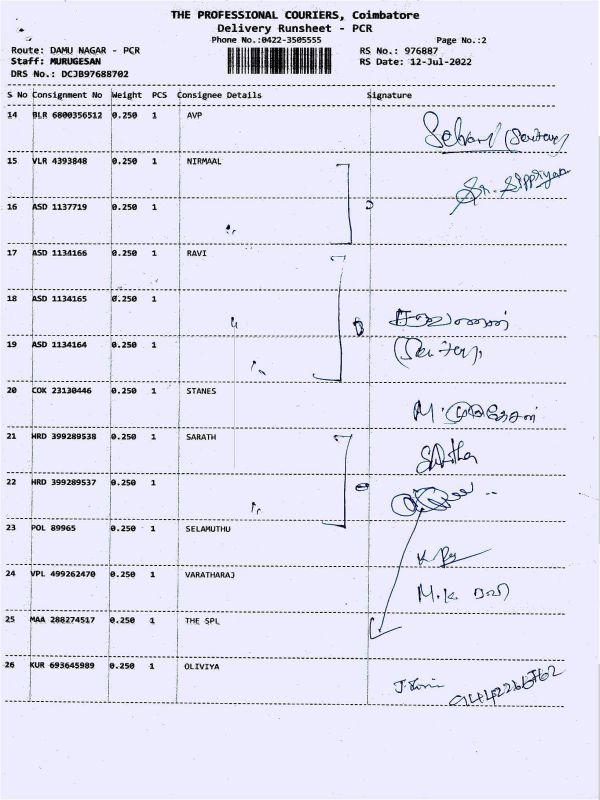 THE PROFESSIONAL COURIERS, Coimbatore
Delivery Runsheet - PCR
Phone No.:0422-3505555
Page No.:2
Route: DAMU NAGAR - PCR
RS No.: 976887
Staff: MURUGESAN
RS Date: 12-Jul-2022
DRS No.: DCJB97688702
S No Consignment No Weight PCS Consignee Details Signature
14 BLR 6800356512 0.250 1 AVP
15 VLR 4393848 0.250 1 NIRMAAL
16 ASD 1137719 0.250 1
17 ASD 1134166 0.250 1 RAVI
18 ASD 1134165 0.250 1
19 ASD 1134164 0.250 1
20 COK 23130446 0.250 1 STANES
21 HRD 399289538 0.250 1 SARATH
22 HRD 399289537 0.250 1
23 POL 89965 0.250 1 SELAMUTHU
24 VPL 499262470 0.250 1 VARATHARAJ
25 MAA 288274517 0.250 1 THE SPL
26 KUR 693645989 0.250 1 OLIVIYA